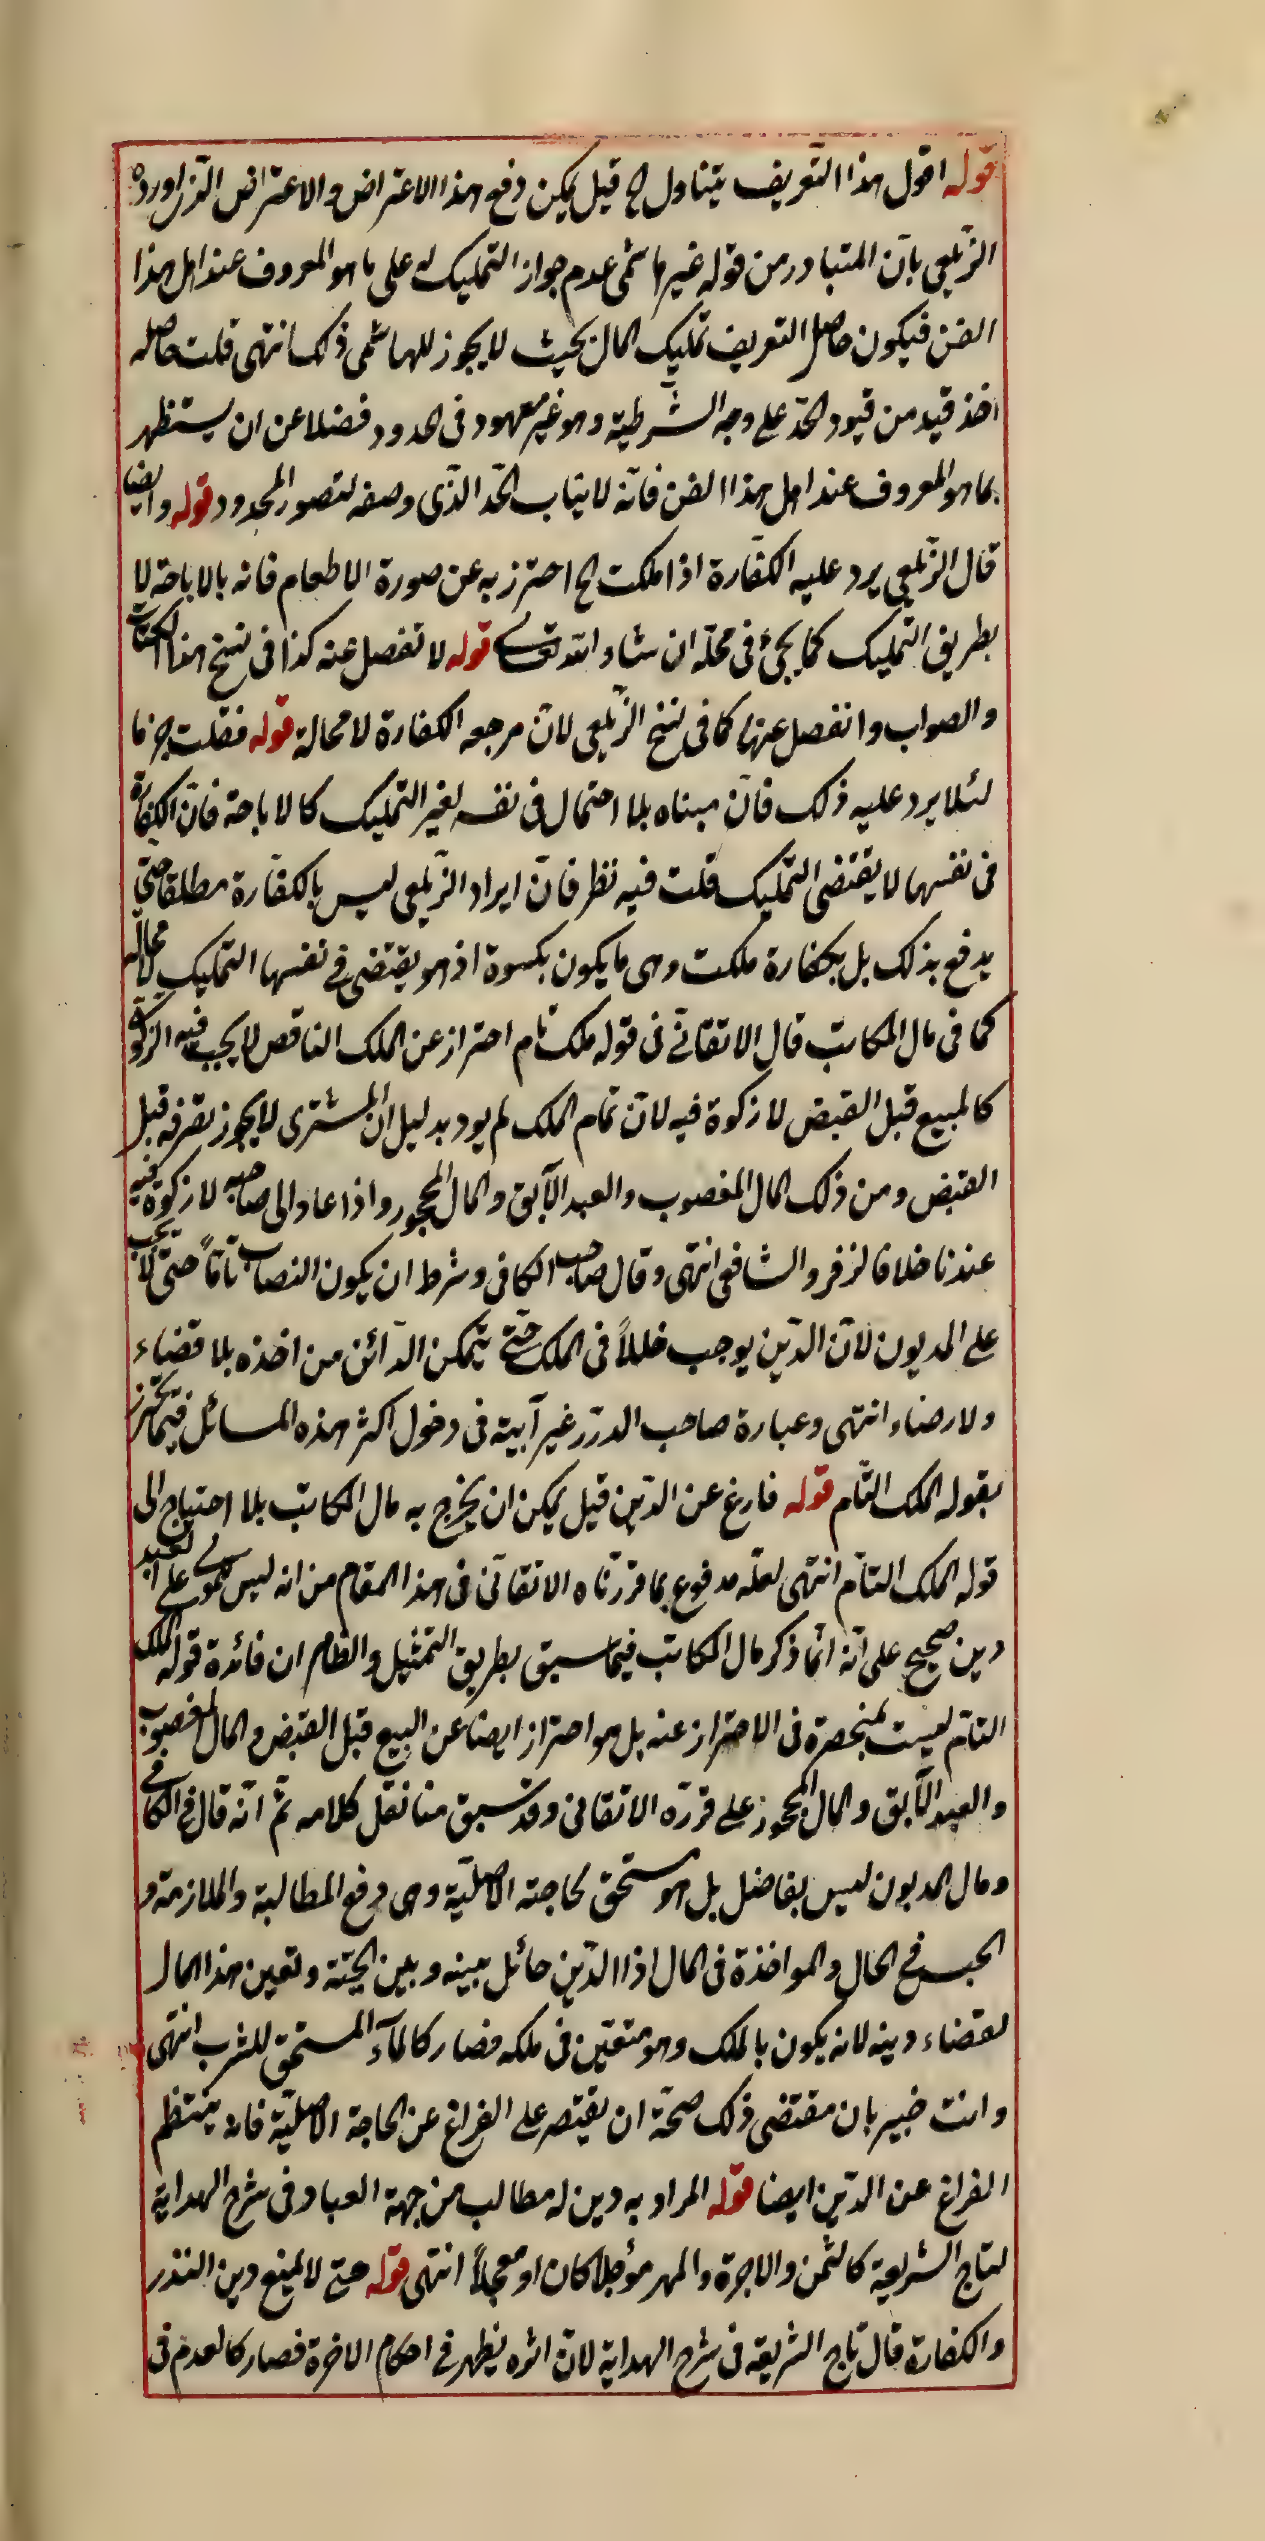 قوله اقول هذا التعريف يتناول الخ قيل يمكن دفع هذا الاعتراض والاعتراض الذى اورده
الزيلعى بان المتبادر من قوله غير هاشمى عدم جواز التمليك له على ما هو المعروف عند اهل هذا
الفن فيكون حاصل التعريف تمليك المال بحيث لا يجوز للهاشمى ذلك انتهى قلت حاصله
اخذ قيد من قيود الحدّ على وجه الشرطية وهو غير معهود فى الحدود فضلا عن ان يستظهر
بما هو المعروف عند اهل هذا الفن فانه لا يناسب الحدّ الذى وصفه لتصور المحدود قوله وايضا
قال الزيلعى يرد عليه الكفارة اذا ملكت الخ احترز به عن صورة الاطعام فانه بالاباحة لا
بطريق التمليك كما يجئ فى محلّه ان شاء الله تعالى قوله لا تفصل عنه كذا فى نسخ هذا الكتاب
والصواب وانفصل عنها كما فى نسخ الزيلعى لان مرجعه الكفارة لا محالة قوله فقلت جزما
لئلا يرد عليه ذلك فان مبناه بلا احتمال فى نفسه لغير التمليك كالاباحة فان الكفارة
فى نفسها لا يقتضى التمليك قلت فيه نظر فان ايراد الزيلعى ليس بالكفارة مطلقا حتى
يدفع بذلك بل بكفارة ملكت وهى ما يكون بكسوة اذ هو يقتضى فى نفسها التمليك لا محالة
كما فى مال المكاتب قال الاتقانى فى قوله ملك تام احتراز عن الملك الناقص لا يجب فيه الزكوة
كالمبيع قبل القبض لا زكوة فيه لان تمام الملك لم يود بدليل ان المشترى لا يجوز تصرفه قبل
القبض ومن ذلك المال المغصوب والعبد الآبق والمال المجحور واذا عاد الى صاحبه لا زكوة فيه
عندنا خلافا لزفر والشافعى انتهى وقال صاحب الكافى وشرط ان يكون النصاب تامّاً حتى لا يجب
على المديون لان الدّين يوجب خللاً فى الملك حتى يتمكن الدائن من اخذه بلا قضاء
ولا رضاء انتهى وعبارة صاحب الدرر غير آبية فى دخول اكثر هذه المسائل فيما يحترز
بقوله الملك التام قوله فارغ عن الدّين قيل يمكن ان يخرج به مال المكاتب بلا احتياج الى
قوله الملك التام انتهى لعله مدفوع بما قرّرناه الاتقانى فى هذا المقام من انه ليس للمولى على العبد
دين صحيح على انّه انما ذكر مال المكاتب فيما سبق بطريق التمثيل والظاهر ان فائدة قوله الملك
التام ليست بمنحصرة فى الاحتراز عنه بل هو احتراز ايضا عن البيع قبل القبض والمال المغصوب
والعبد الآبق والمال المجحور على قرّره الاتقانى وقد سبق منا نقل كلامه ثمّ انّه قال فى الكافى
ومال المديون ليس بفاضل بل هو مستحق لحاجته الاصليّة وهى دفع المطالبة والملازمة و
الحبس فى الحال والمواخذة فى المال اذ الدّين حائل بينه وبين الجنّة وتعين هذا المال
لقضاء دينه لانه يكون بالملك وهو متعيّن فى ملكه فصار كالماء المستحق للشرب انتهى
وانت خبير بان مقتضى ذلك صحّة ان يقتصر على الفراغ عن الحاجة الاصليّة فانه ينتظم
الفراغ عن الدّين ايضا قوله المراد به دين له مطالب من جهة العباد وفى شرح الهداية
لتاج الشريعة كالثمن والاجرة والمهر مؤجلا كان او معجلاً انتهى قوله حتى لا يمنع دين النذر
والكفارة قال تاج الشريعة فى شرح الهداية لان اثره يظهر فى احكام الاخرة فصار كالعدم فى